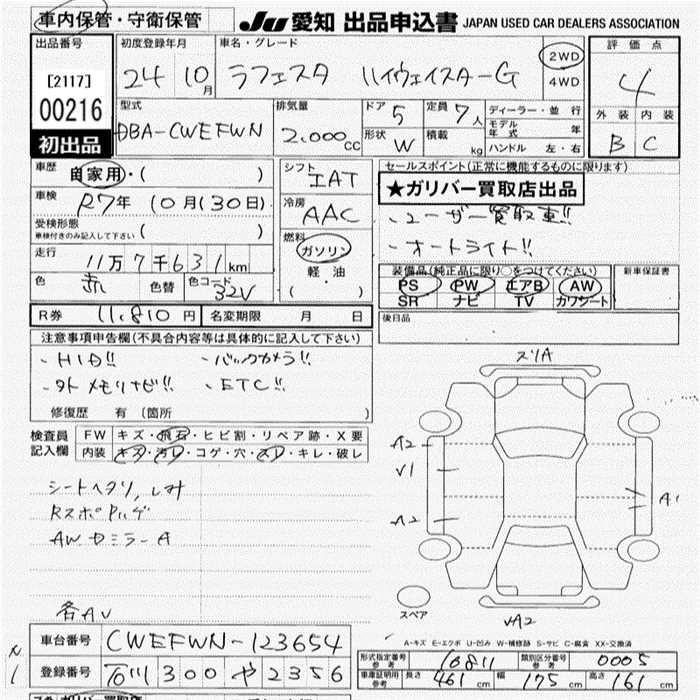 車内保管・守衛保管 JU 愛知 出品申込書 JAPAN USED CAR DEALERS ASSOCIATION
出品番号 初度登録年月 車名・グレード 評価点
[2117] 24 10月 ラフェスタ ハイウェイスターG 2WD 4WD 4
00216 型式 排気量 ドア 5 定員 7人 ディーラー・並行 外装 内装
DBA-CWEFWN 2,000cc 形状 W 積載 kg モデル年式 年 B C
初出品 ハンドル 左・右
車歴 自家用・( ) シフト IAT セールスポイント(正常に機能するものに限ります)
車検 R7年 10月(30日) 冷房 AAC ★ガリバー買取店出品
受検形態 ( ) - ユーザー買取車!!
車検付きのみ記入して下さい 燃料 ガソリン - オートライト!!
走行 11万7千631km 軽油
色 赤 色替 色コード 32V ( ) 装備品(純正品に限り○をつけてください) 新車保証書
PS PW エアB AW
SR ナビ TV カワシート
R券 11,810円 名変期限 月 日 後日品
注意事項申告欄(不具合内容等は具体的に記入して下さい)
- HID!! - バックカメラ!!
- 外メモリナビ!! - ETC!!
修復歴 有 (箇所 )
検査員記入欄 FW キズ・飛石・ヒビ割・リペア跡・X要
内装 キズ・汚レ・コゲ・穴・スレ・キレ・破レ
シートヘタリ,シミ
AWガミラーA
各AV
スリA
A2
V1
A2
A1
スペア
VA2
A-キズ E-エクボ U-凹み W-補修跡 S-サビ C-腐食 XX-交換済
車台番号 CWEFWN-123654
登録番号 石川 300 や 2356
形式指定番号 参考 16811 類別区分番号 参考 0005
車庫証明用 参考 長さ 461cm 幅 175cm 高さ 161cm